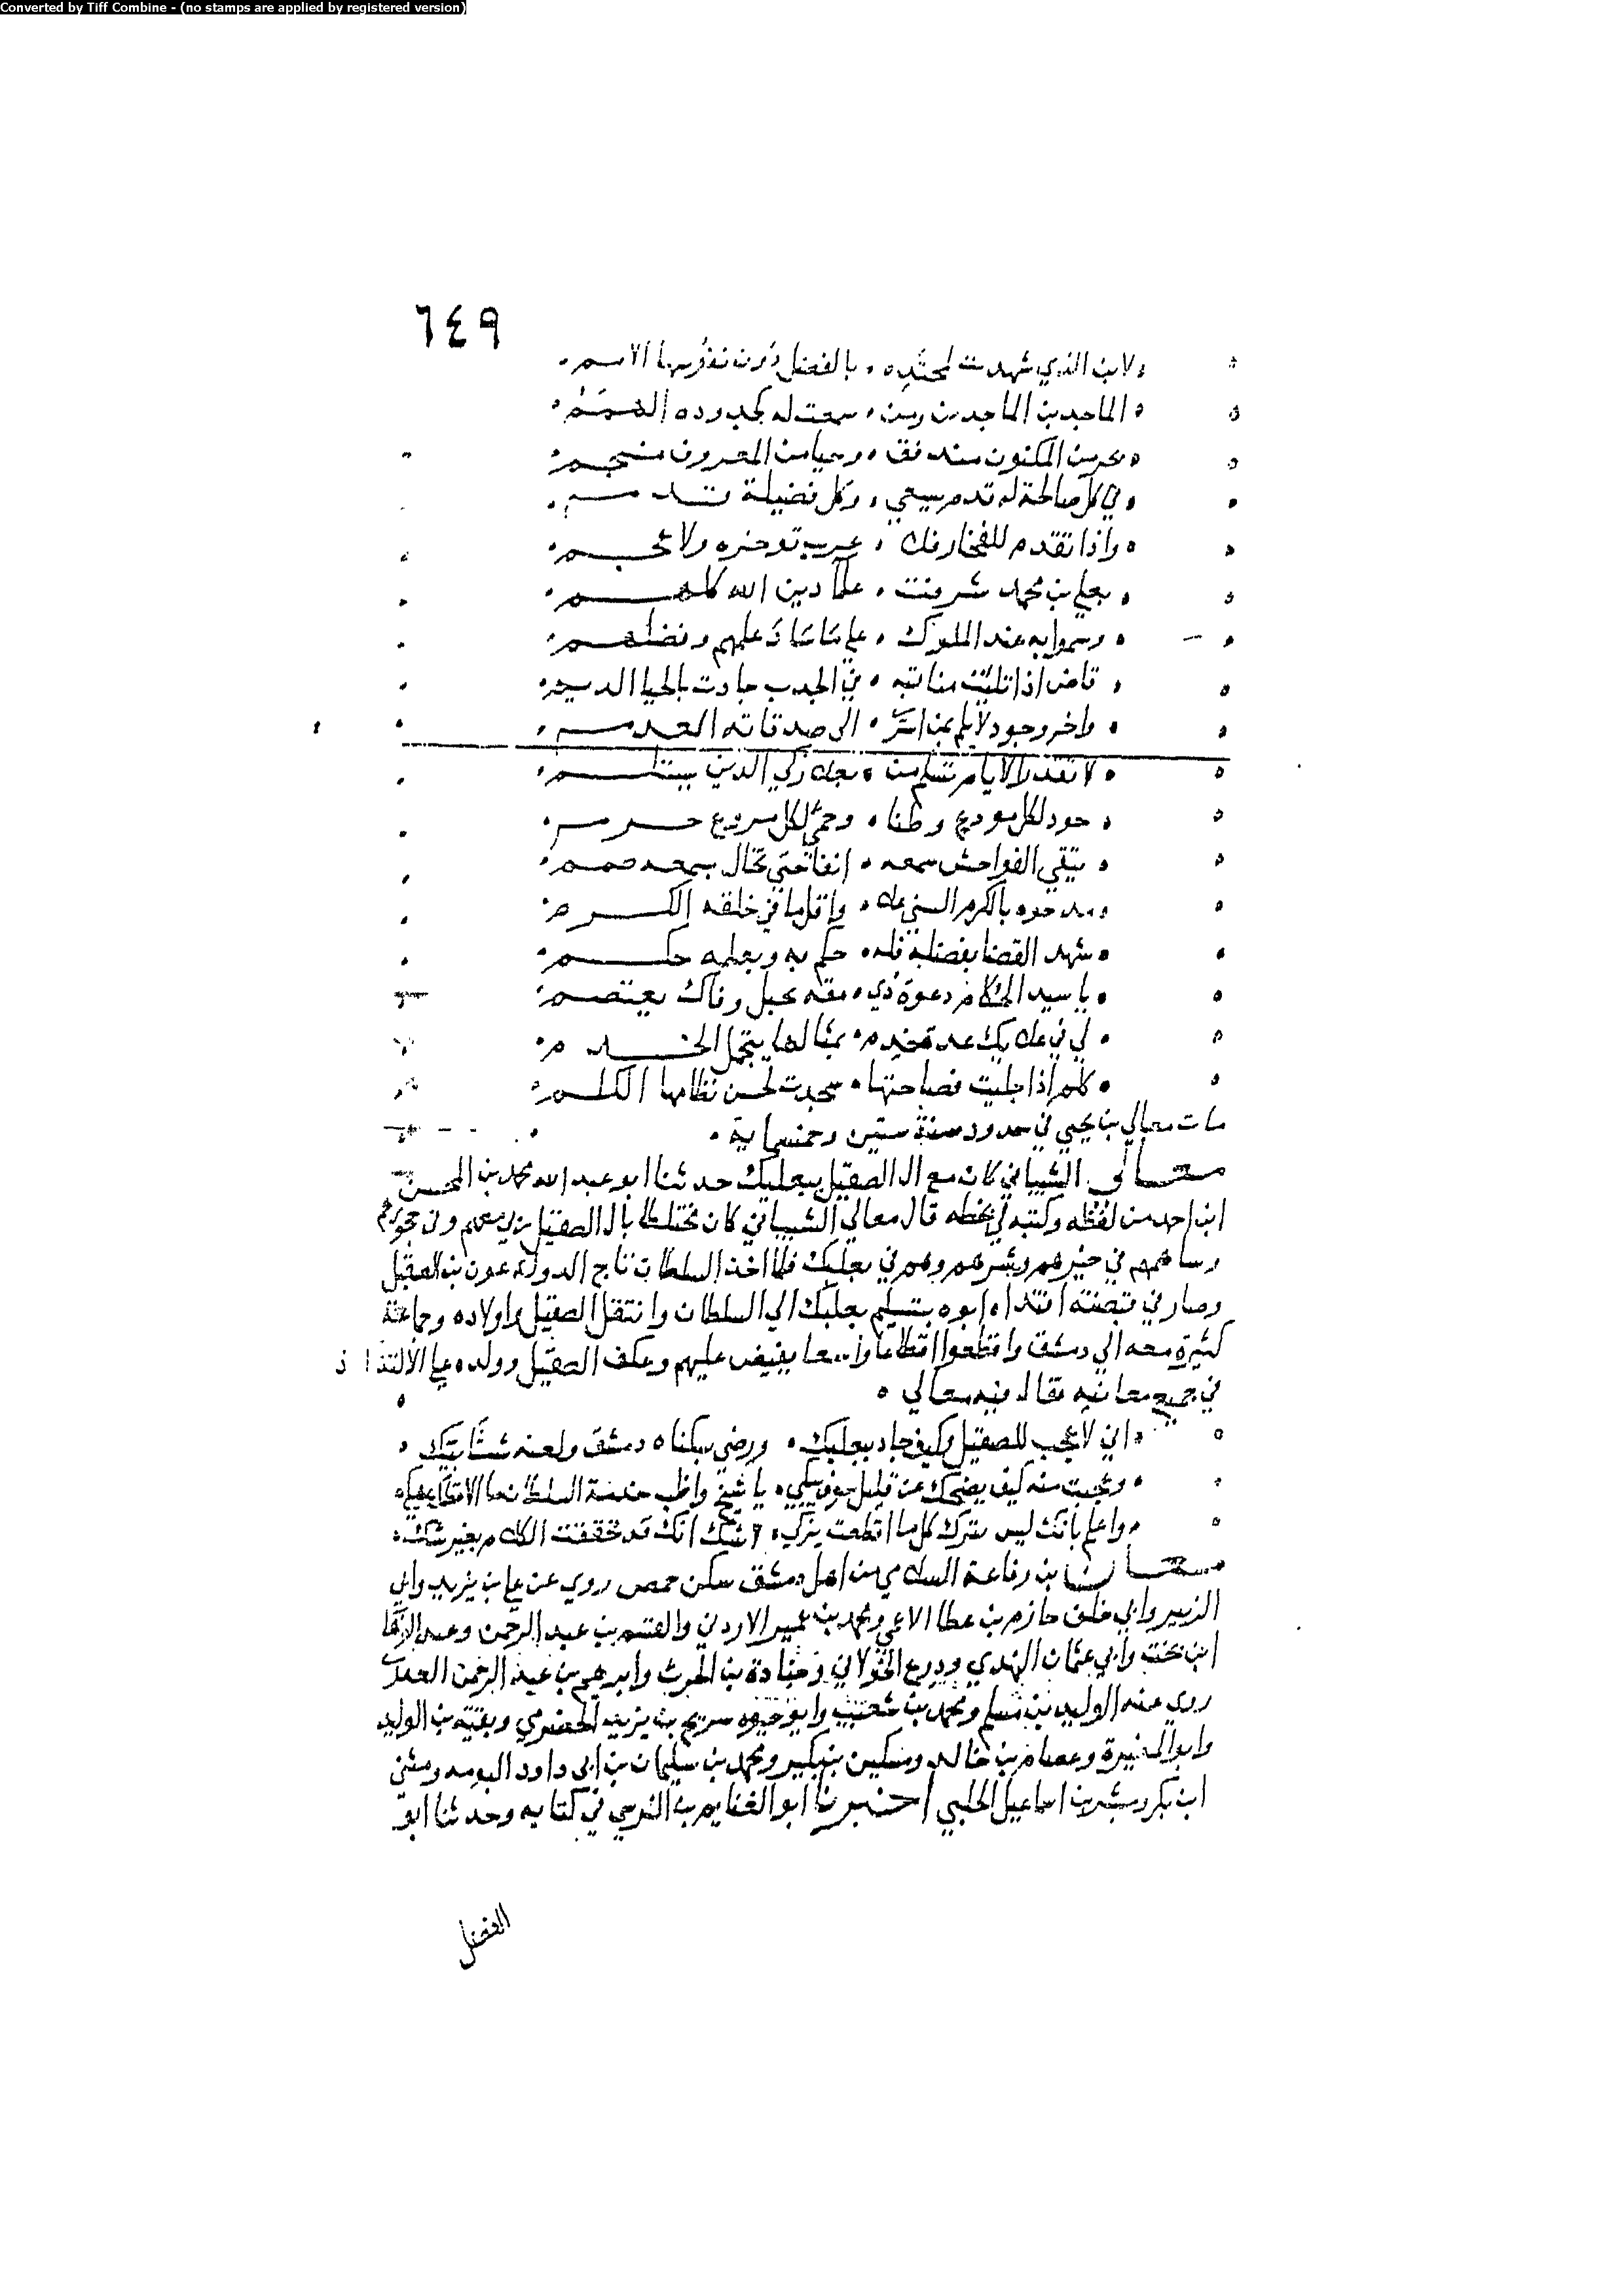 Converted by Tiff Combine - (no stamps are applied by registered version)
٦٤٩
لابن الذي شهدت لمحتده بالفضل دون نفوسها الامم
الماجد بن الماجدين ومن سمعت له بحدوده الهمم
بحر من المكنون مندفق وحيا من المعروف منسجم
في كل صالحة له قدم يسعى وكل فضيلة قدم
واذا تقدم للفخار فلا عرب توخره ولا عجم
بعلي بن محمد شرفت علما دين الله كلهم
وسموا به عند الملوك علي ما شاد علمهم وفضلهم
قاض اذا تليت مناقبه في الجدب جادت بالحيا الديم
واخو وجود لا يلم بمن الى صدقاته العدم
لا تقتدر الايام تثلم من مجد زكي الدين ينثلم
جود لكل مودع وطنا وحمى لكل مروع حرم
يتقي الفواحش سمعه انفا حتى تخال بسمعه صمم
ومدحوه بالكرم السني علا واقل ما في خلقه الكرم
شهد القضا بفضله فله حكم به وبعلمه حكم
يا سيد الحكام دعوة ذي مقة بحبل ولاك يعتصم
لي في علاك عدة تخدم بمثالها يتجمل الخدم
كلم اذا جليت فصاحتها سجدت لحسن نظامها الكلم
مات معالي بن يحيى في حدود سنة ستين وخمسماية
معالي الشيباني كان مع ال الصقيل ببعلبك حدثنا ابو عبد الله محمد بن المحسن
ابن احمد من لفظه وكتبه لي بخطه قال معالي الشيباني كان مختلطا بال الصقيل
وساهمهم في خيرهم وشرهم وهم في بعلبك فلما اخذ السلطان تاج الدولة عون بن الصقيل
وصار في قبضته افتداه ابوه بتسليم بعلبك الي السلطان وانتقل الصقيل واولاده وجماعة
كثيرة معه الي دمشق واقطعوا اقطاعا واسعا يفيض عليهم وعكف الصقيل وولده علي الالتذاذ
في جميع معانيه فقال فيه معالي
اني لاعجب للصقيل وكيف جاد ببعلبك ورضي بسكناه دمشق
وعجبت منه كيف يضحك عن قليل سوف يبكي يا شيخ واظب خدمة السلطان
واعلم بانك ليس تترك كلما اقطعت يزكي انك قد تحققت الكلام بغير شك
معان بن رفاعة السلامي من اهل دمشق سكن حمص روي عن علي بن يزيد وابي
الزبير وابي خلف حازم بن عطا الاعمى ومحمد بن عمير الاردني والقسم بن عبد الرحمن وعبد الوهاب
ابن بخت وابي عثمان النهدي ودرع الخولاني وجنادة بن الحرث وابرهيم بن عبد الرحمن العذري
روي عنه الوليد بن مسلم ومحمد بن شعيب وابو حيوه سريح بن يزيد الحضرمي وبقية بن الوليد
وابو المغيرة وعصام بن خالد ومسكين بن بكير ومحمد بن سليمان بن ابي داود البومه ومثنى
ابن بكر ومبشر بن اسماعيل الحلبي اخبرنا ابو الغنايم بن النرسي في كتابه وحدثنا ابو
الفضل